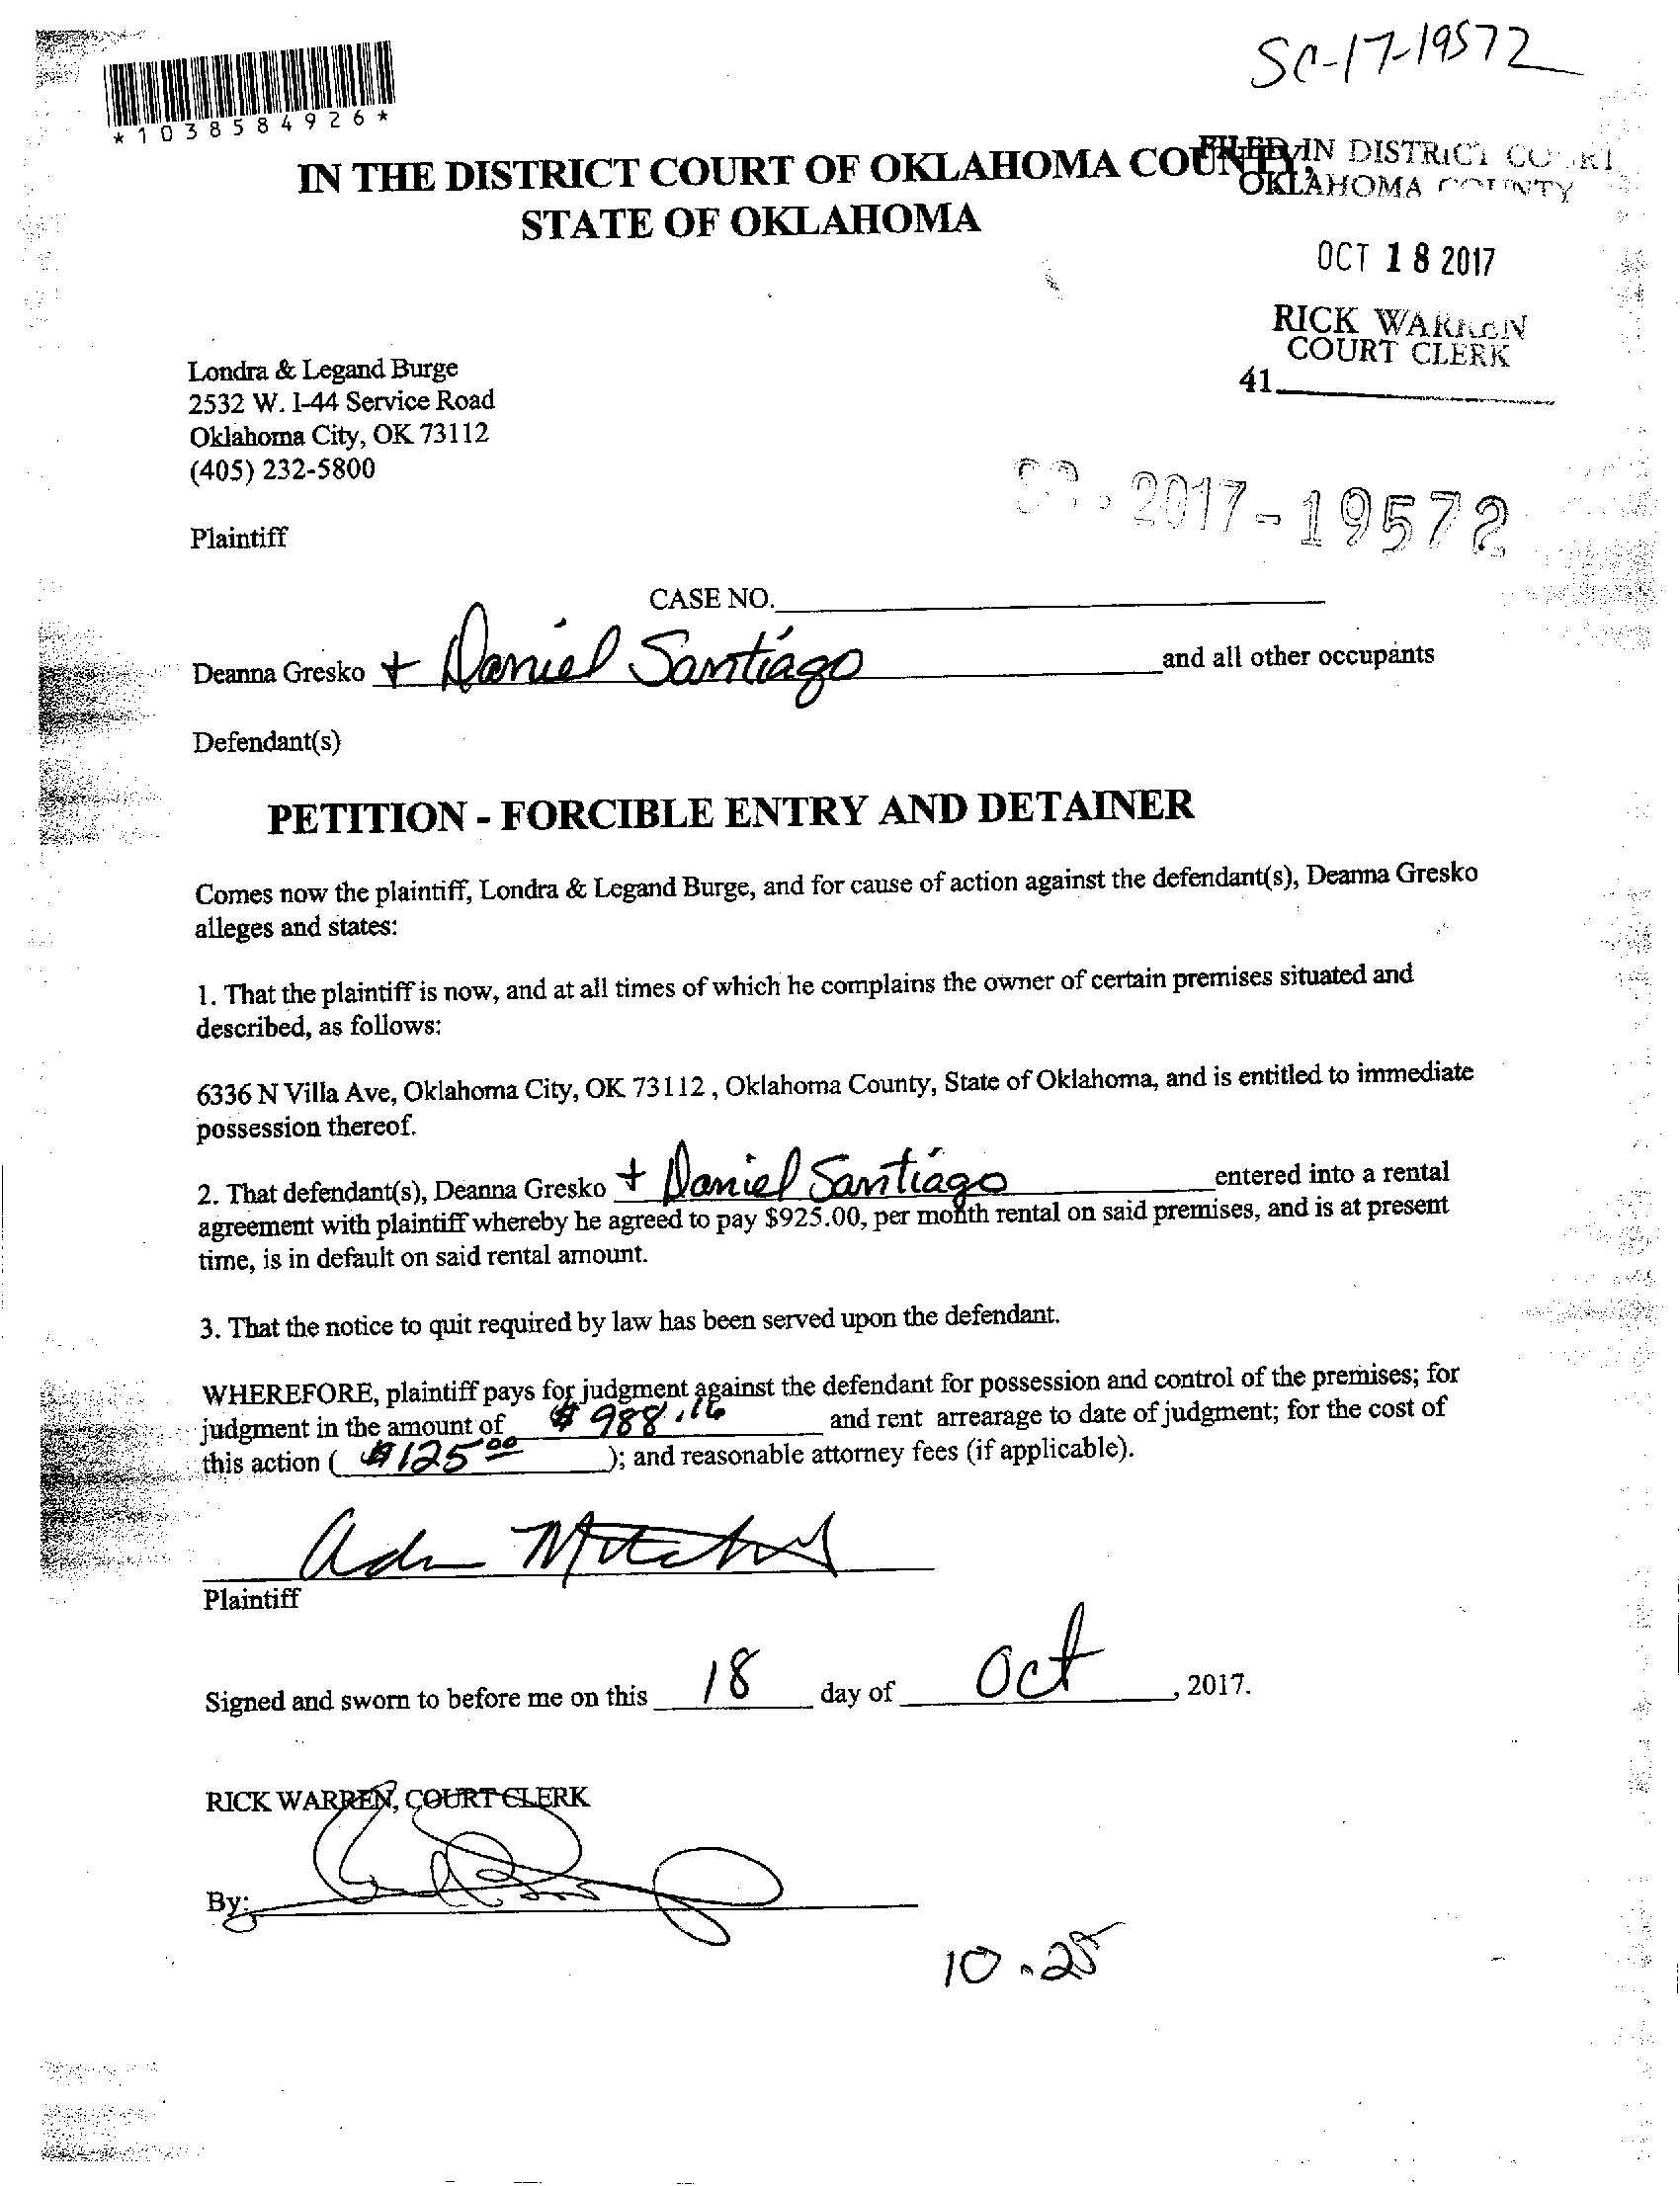 SC-17-19572
*1038584926*
IN THE DISTRICT COURT OF OKLAHOMA COUNTY,
STATE OF OKLAHOMA
FILED IN DISTRICT COURT
OKLAHOMA COUNTY
OCT 18 2017
RICK WARREN
COURT CLERK
41
Londra & Legand Burge
2532 W. I-44 Service Road
Oklahoma City, OK 73112
(405) 232-5800
SC-2017-19572
Plaintiff
CASE NO.
Deanna Gresko + Daniel Santiago and all other occupants
Defendant(s)
PETITION - FORCIBLE ENTRY AND DETAINER
Comes now the plaintiff, Londra & Legand Burge, and for cause of action against the defendant(s), Deanna Gresko
alleges and states:
1. That the plaintiff is now, and at all times of which he complains the owner of certain premises situated and
described, as follows:
6336 N Villa Ave, Oklahoma City, OK 73112 , Oklahoma County, State of Oklahoma, and is entitled to immediate
possession thereof.
2. That defendant(s), Deanna Gresko + Daniel Santiago entered into a rental
agreement with plaintiff whereby he agreed to pay $925.00, per month rental on said premises, and is at present
time, is in default on said rental amount.
3. That the notice to quit required by law has been served upon the defendant.
WHEREFORE, plaintiff pays for judgment against the defendant for possession and control of the premises; for
judgment in the amount of $988.16 and rent arrearage to date of judgment; for the cost of
this action ( $125 00 ); and reasonable attorney fees (if applicable).
Plaintiff
Signed and sworn to before me on this 18 day of Oct , 2017.
RICK WARREN, COURT CLERK
By:
10-25